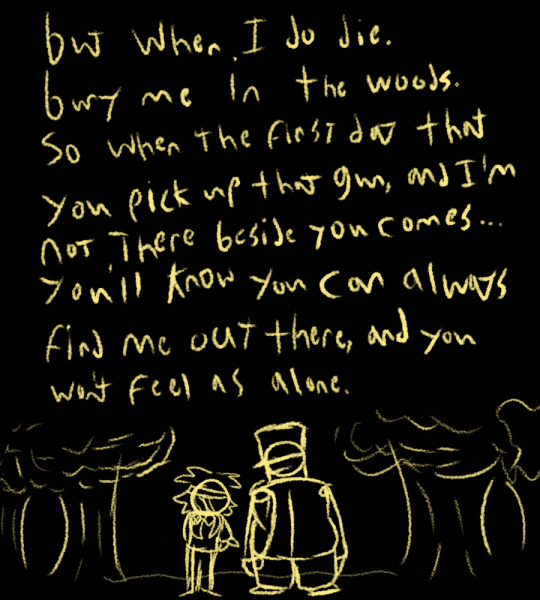 but when I do die.
bury me in the woods.
So when the first day that
you pick up that gun, and I'm
not there beside you comes...
you'll know you can always
find me out there, and you
won't feel as alone.